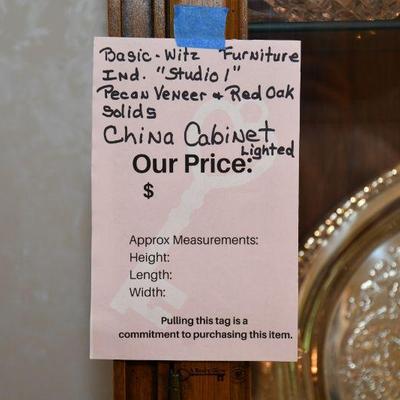 Basic-Witz Furniture
Ind. "Studio 1"
Pecan Veneer & Red Oak
Solids
China Cabinet
Lighted
Our Price:
$
Approx Measurements:
Height:
Length:
Width:
Pulling this tag is a
commitment to purchasing this item.